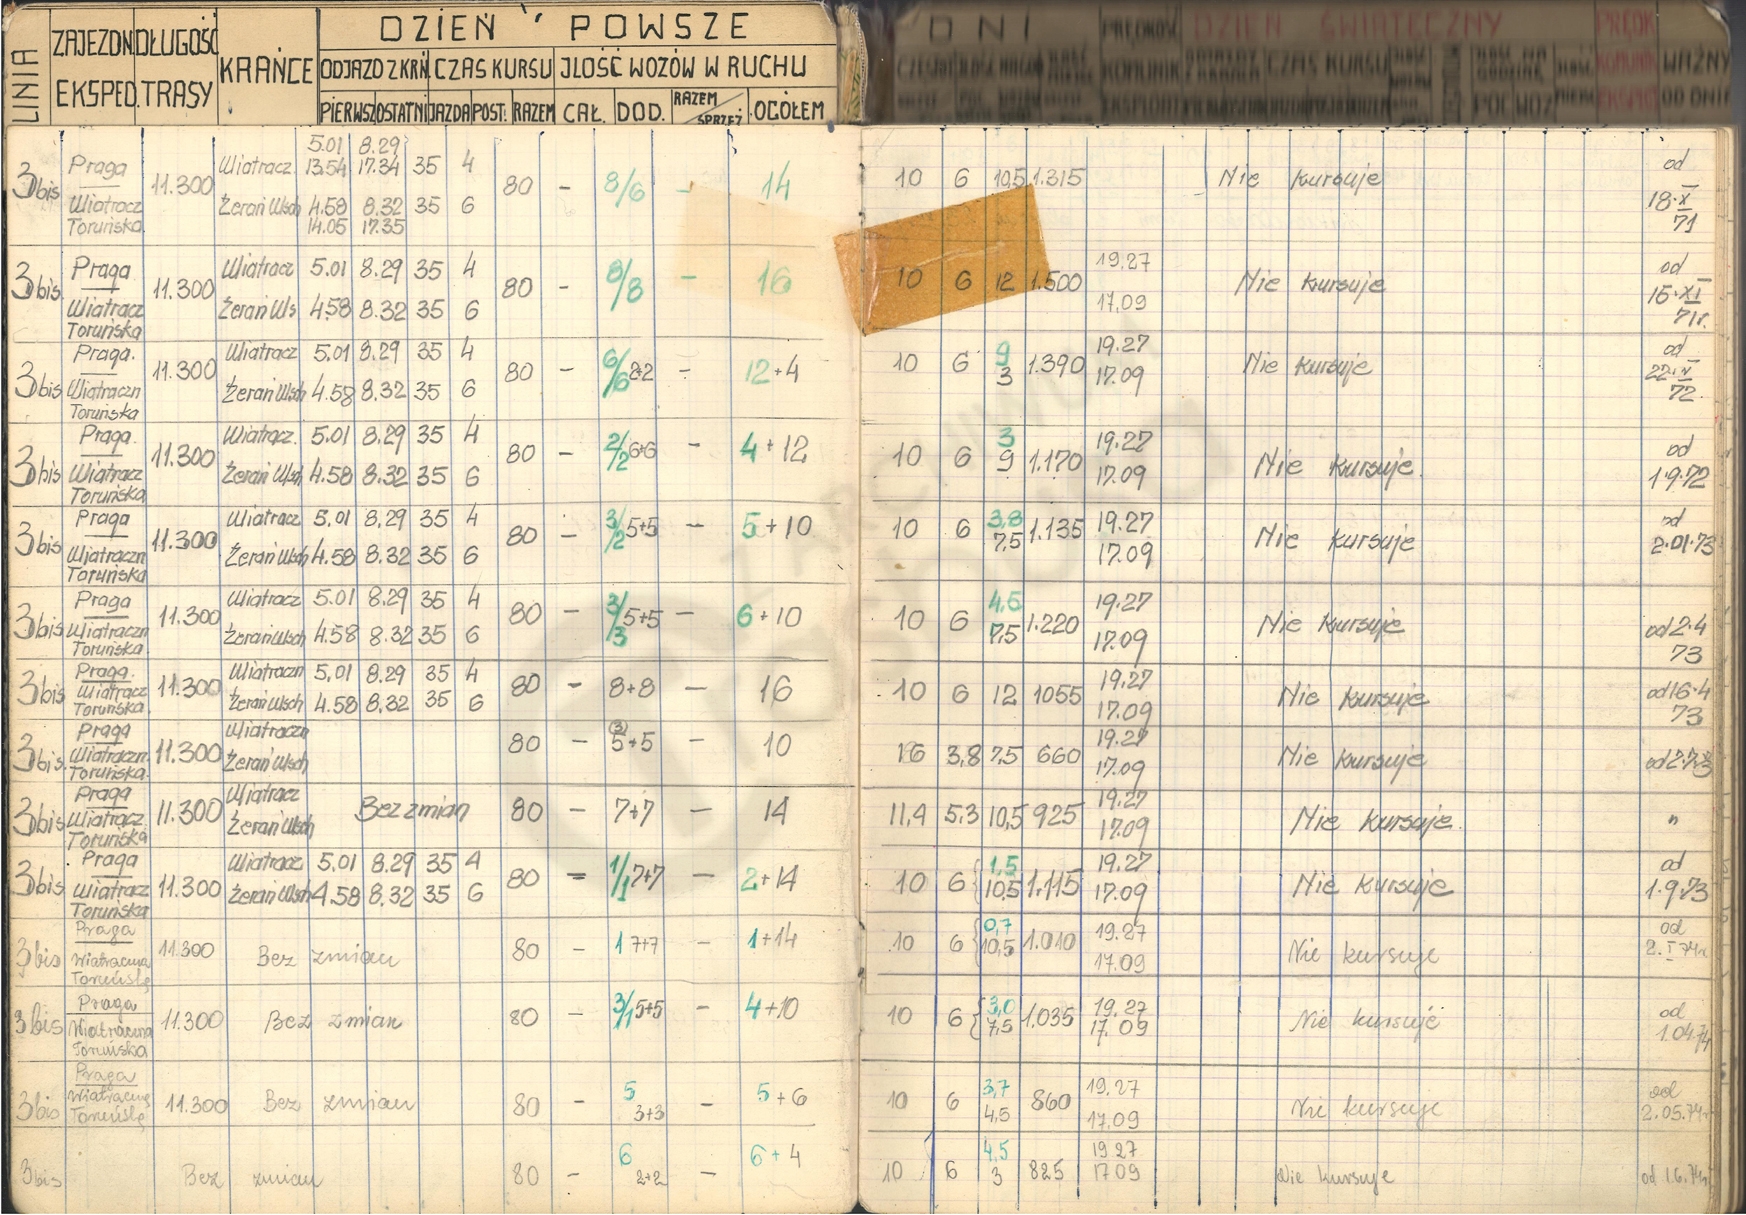 LINIA ZAJEZDN. EKSPED. DŁUGOŚĆ TRASY KRAŃCE DZIEŃ POWSZE
ODJAZD Z KRŃ. CZAS KURSU JLOŚĆ WOZÓW W RUCHU
PIERWSZ OSTATNI JAZDA POST. RAZEM CAŁ. DOD. RAZEM/SPRZĘŻ OGÓŁEM
DNI DZIEŃ ŚWIĄTECZNY
CZAS KURSU WAŻNY OD DNIA
5.01 8.29
3bis Praga 11.300 Wiatracz. 13.54 17.34 35 4 80 - 8/6 - 14 10 6 10,5 1.315 Nie kursuje od 18.X 71
Wiatracz Żerań Wsch 4.58 8.32 35 6
Toruńska 14.05 17.35
3bis Praga 11.300 Wiatracz 5.01 8.29 35 4 80 - 8/8 - 16 10 6 12 1.500 19.27 Nie kursuje od 15.XI 71r.
Wiatracz Żerań Ws 4.58 8.32 35 6 17.09
Toruńska
3bis Praga. 11.300 Wiatracz 5.01 8.29 35 4 80 - 6/6 2+2 - 12+4 10 6 9 3 1.390 19.27 Nie kursuje od 72.
Wiatraczn Żerań Wsch 4.58 8.32 35 6 17.09
Toruńska
3bis Praga. 11.300 Wiatracz. 5.01 8.29 35 4 80 - 2/2 6+6 - 4+12 10 6 3 9 1.170 19.27 Nie kursuje. od 1.9.72
Wiatracz Żerań Wsch 4.58 8.32 35 6 17.09
Toruńska
3bis Praga 11.300 Wiatracz 5.01 8.29 35 4 80 - 3/2 5+5 - 5+10 10 6 3,8 7,5 1.135 19.27 Nie kursuje od 2.01.73
Wiatraczn Żerań Wsch 4.58 8.32 35 6 17.09
Toruńska
3bis Praga 11.300 Wiatracz 5.01 8.29 35 4 80 - 3/3 5+5 - 6+10 10 6 4,5 7,5 1.220 19.27 Nie kursuje od 2.4 73
Wiatraczn Żerań Wsch 4.58 8.32 35 6 17.09
Toruńska
3bis Praga. 11.300 Wiatraczn 5.01 8.29 35 4 80 - 8+8 - 16 10 6 12 1055 19.27 Nie kursuje od 16.4 73
Wiatracz Żerań Wsch 4.58 8.32 35 6 17.09
Toruńska
3bis. Praga 11.300 Wiatraczn 80 - 5+5 - 10 16 3,8 7,5 660 19.27 Nie kursuje
Wiatraczn. Żerań Wsch 17.09
Toruńska
3bis Praga 11.300 Wiatracz Bez zmian 80 - 7+7 - 14 11,4 5,3 10,5 925 19.27 Nie kursuje. "
Wiatracz. Żerań Wsch 17.09
Toruńska
3bis Praga 11.300 Wiatracz 5.01 8.29 35 4 80 - 1/1 7+7 - 2+14 10 6 1,5 10,5 1.115 19.27 Nie kursuje od 1.9.73
Wiatracz Żerań Wsch 4.58 8.32 35 6 17.09
Toruńska
3bis Praga 11.300 Bez zmian 80 - 1 7+7 - 1+14 10 6 0,7 10,5 1.010 19.27 Nie kursuje od 2.I 74r
17.09
3bis Praga 11.300 Bez zmian 80 - 3/1 5+5 - 4+10 10 6 3,0 7,5 1.035 19.27 Nie kursuje od 1.04.74
Wiatraczna 17.09
Toruńska
3bis Praga 11.300 Bez zmian 80 - 5 3+3 - 5+6 10 6 3,7 4,5 860 19.27 Nie kursuje od 2.05.74r
17.09
3bis Bez zmian 80 - 6 2+2 - 6+4 10 6 4,5 3 825 19.27 Nie kursuje od 1.6.74r
17.09